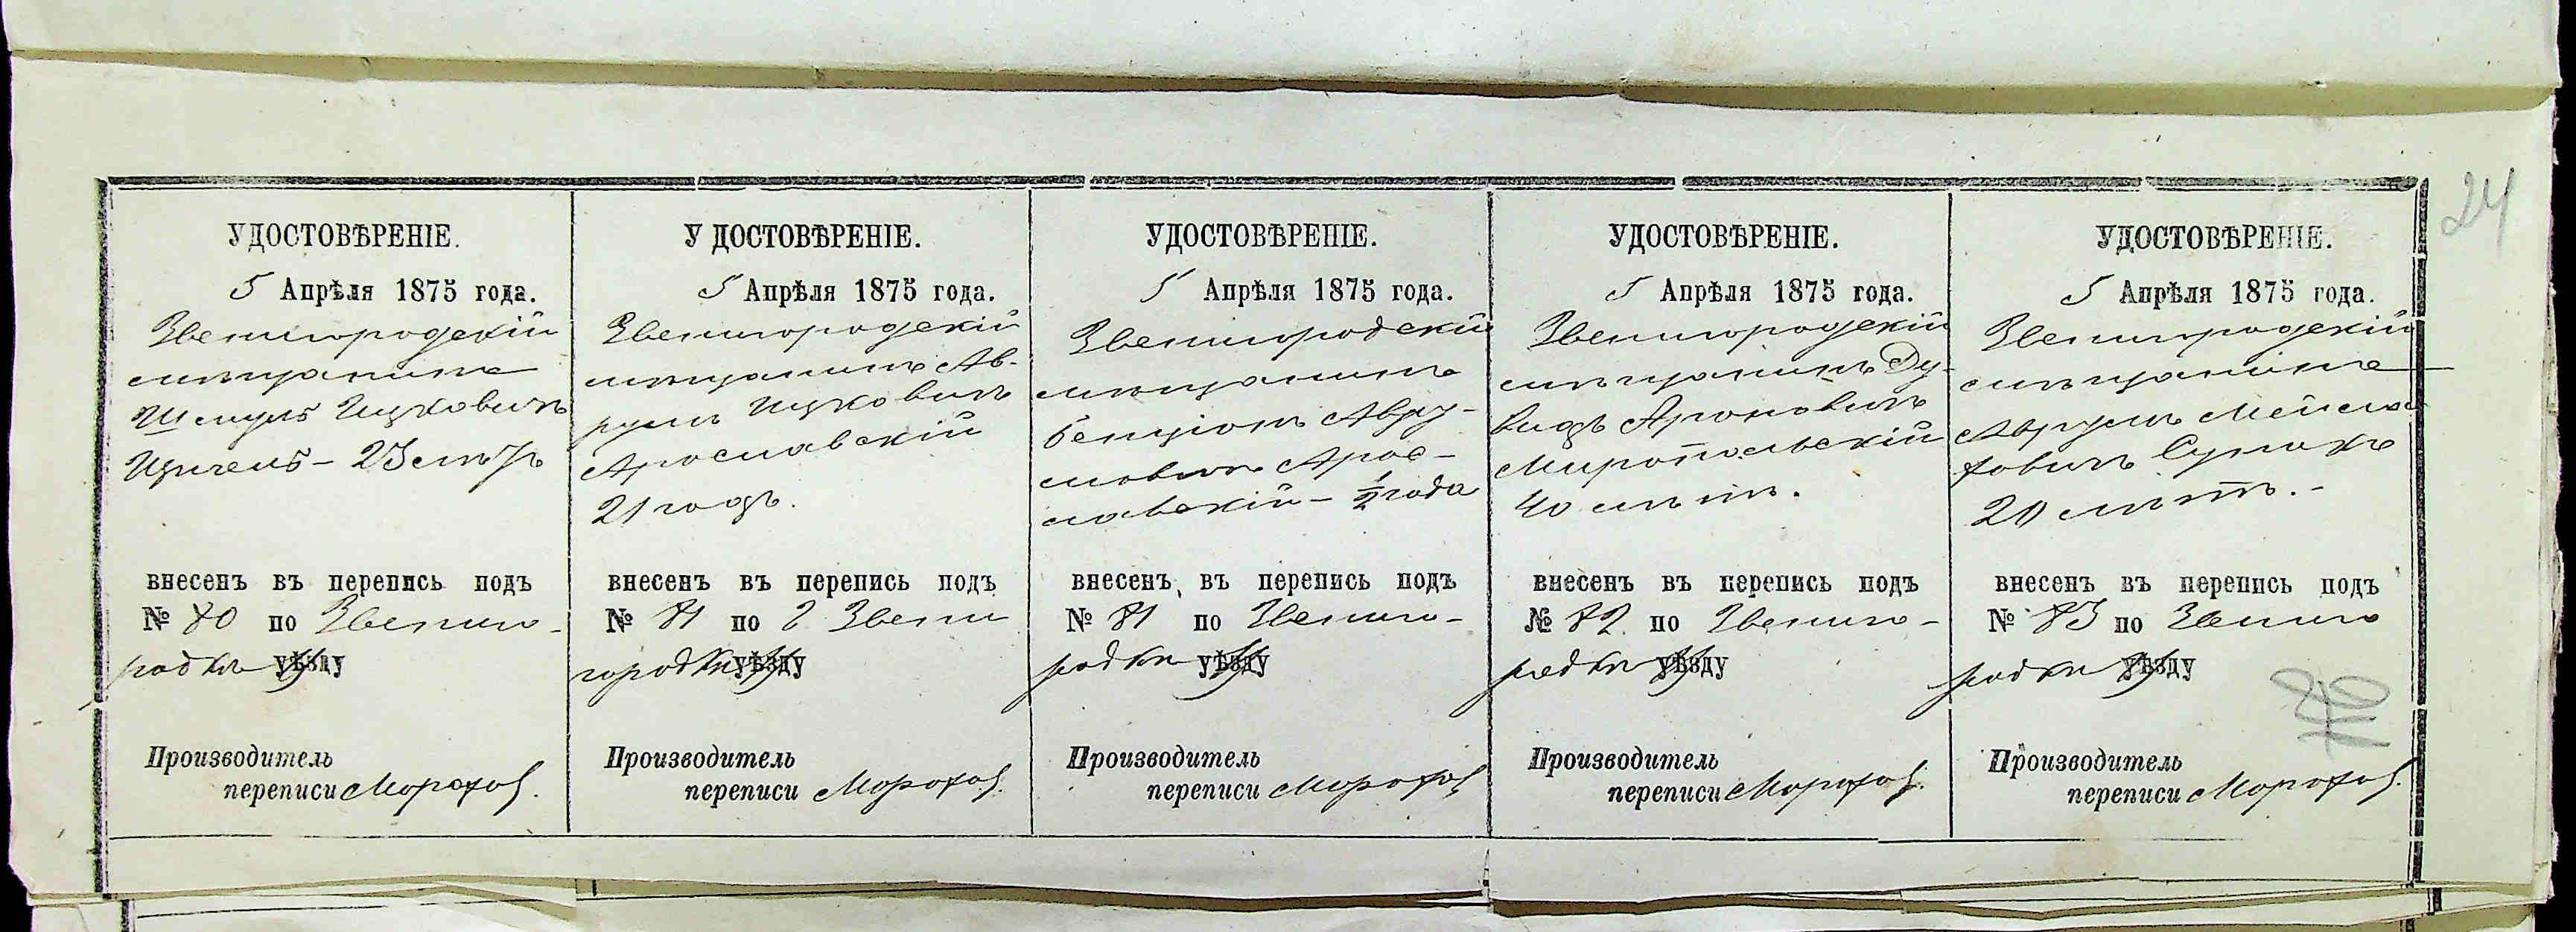 24
УДОСТОВѢРЕНІЕ.
5 Апрѣля 1875 года.
Звенигородскій
мѣщанинъ
Шмуль Ицковичъ
23 лѣтъ
внесенъ въ перепись подъ
№ 80 по Звениго-
родкѣ уѣзду
Производитель
переписи Морозов.
УДОСТОВѢРЕНІЕ.
5 Апрѣля 1875 года.
Звенигородскій
мѣщанинъ Ав-
румъ Ицковичъ
Ярославскій
21 годъ.
внесенъ въ перепись подъ
№ 81 по г Звени
городкѣ уѣзду
Производитель
переписи Морозов.
УДОСТОВѢРЕНІЕ.
5 Апрѣля 1875 года.
Звенигородскій
мѣщанинъ
Бенціонъ Авру-
мовичъ Ярос-
лавскій - 1/2 года
внесенъ въ перепись подъ
№ 81 по Звениго-
родкѣ уѣзду
Производитель
переписи Морозов
УДОСТОВѢРЕНІЕ.
5 Апрѣля 1875 года.
Звенигородскій
мѣщанинъ Ду-
видъ Ароновичъ
Миропольскій
40 лѣтъ.
внесенъ въ перепись подъ
№ 82 по Звениго-
родкѣ уѣзду
Производитель
переписи Морозов.
УДОСТОВѢРЕНІЕ.
5 Апрѣля 1875 года.
Звенигородскій
мѣщанинъ
Аврумъ
20 лѣтъ.-
внесенъ въ перепись подъ
№ 83 по Звениго
родкѣ уѣзду
Производитель
переписи Морозов.